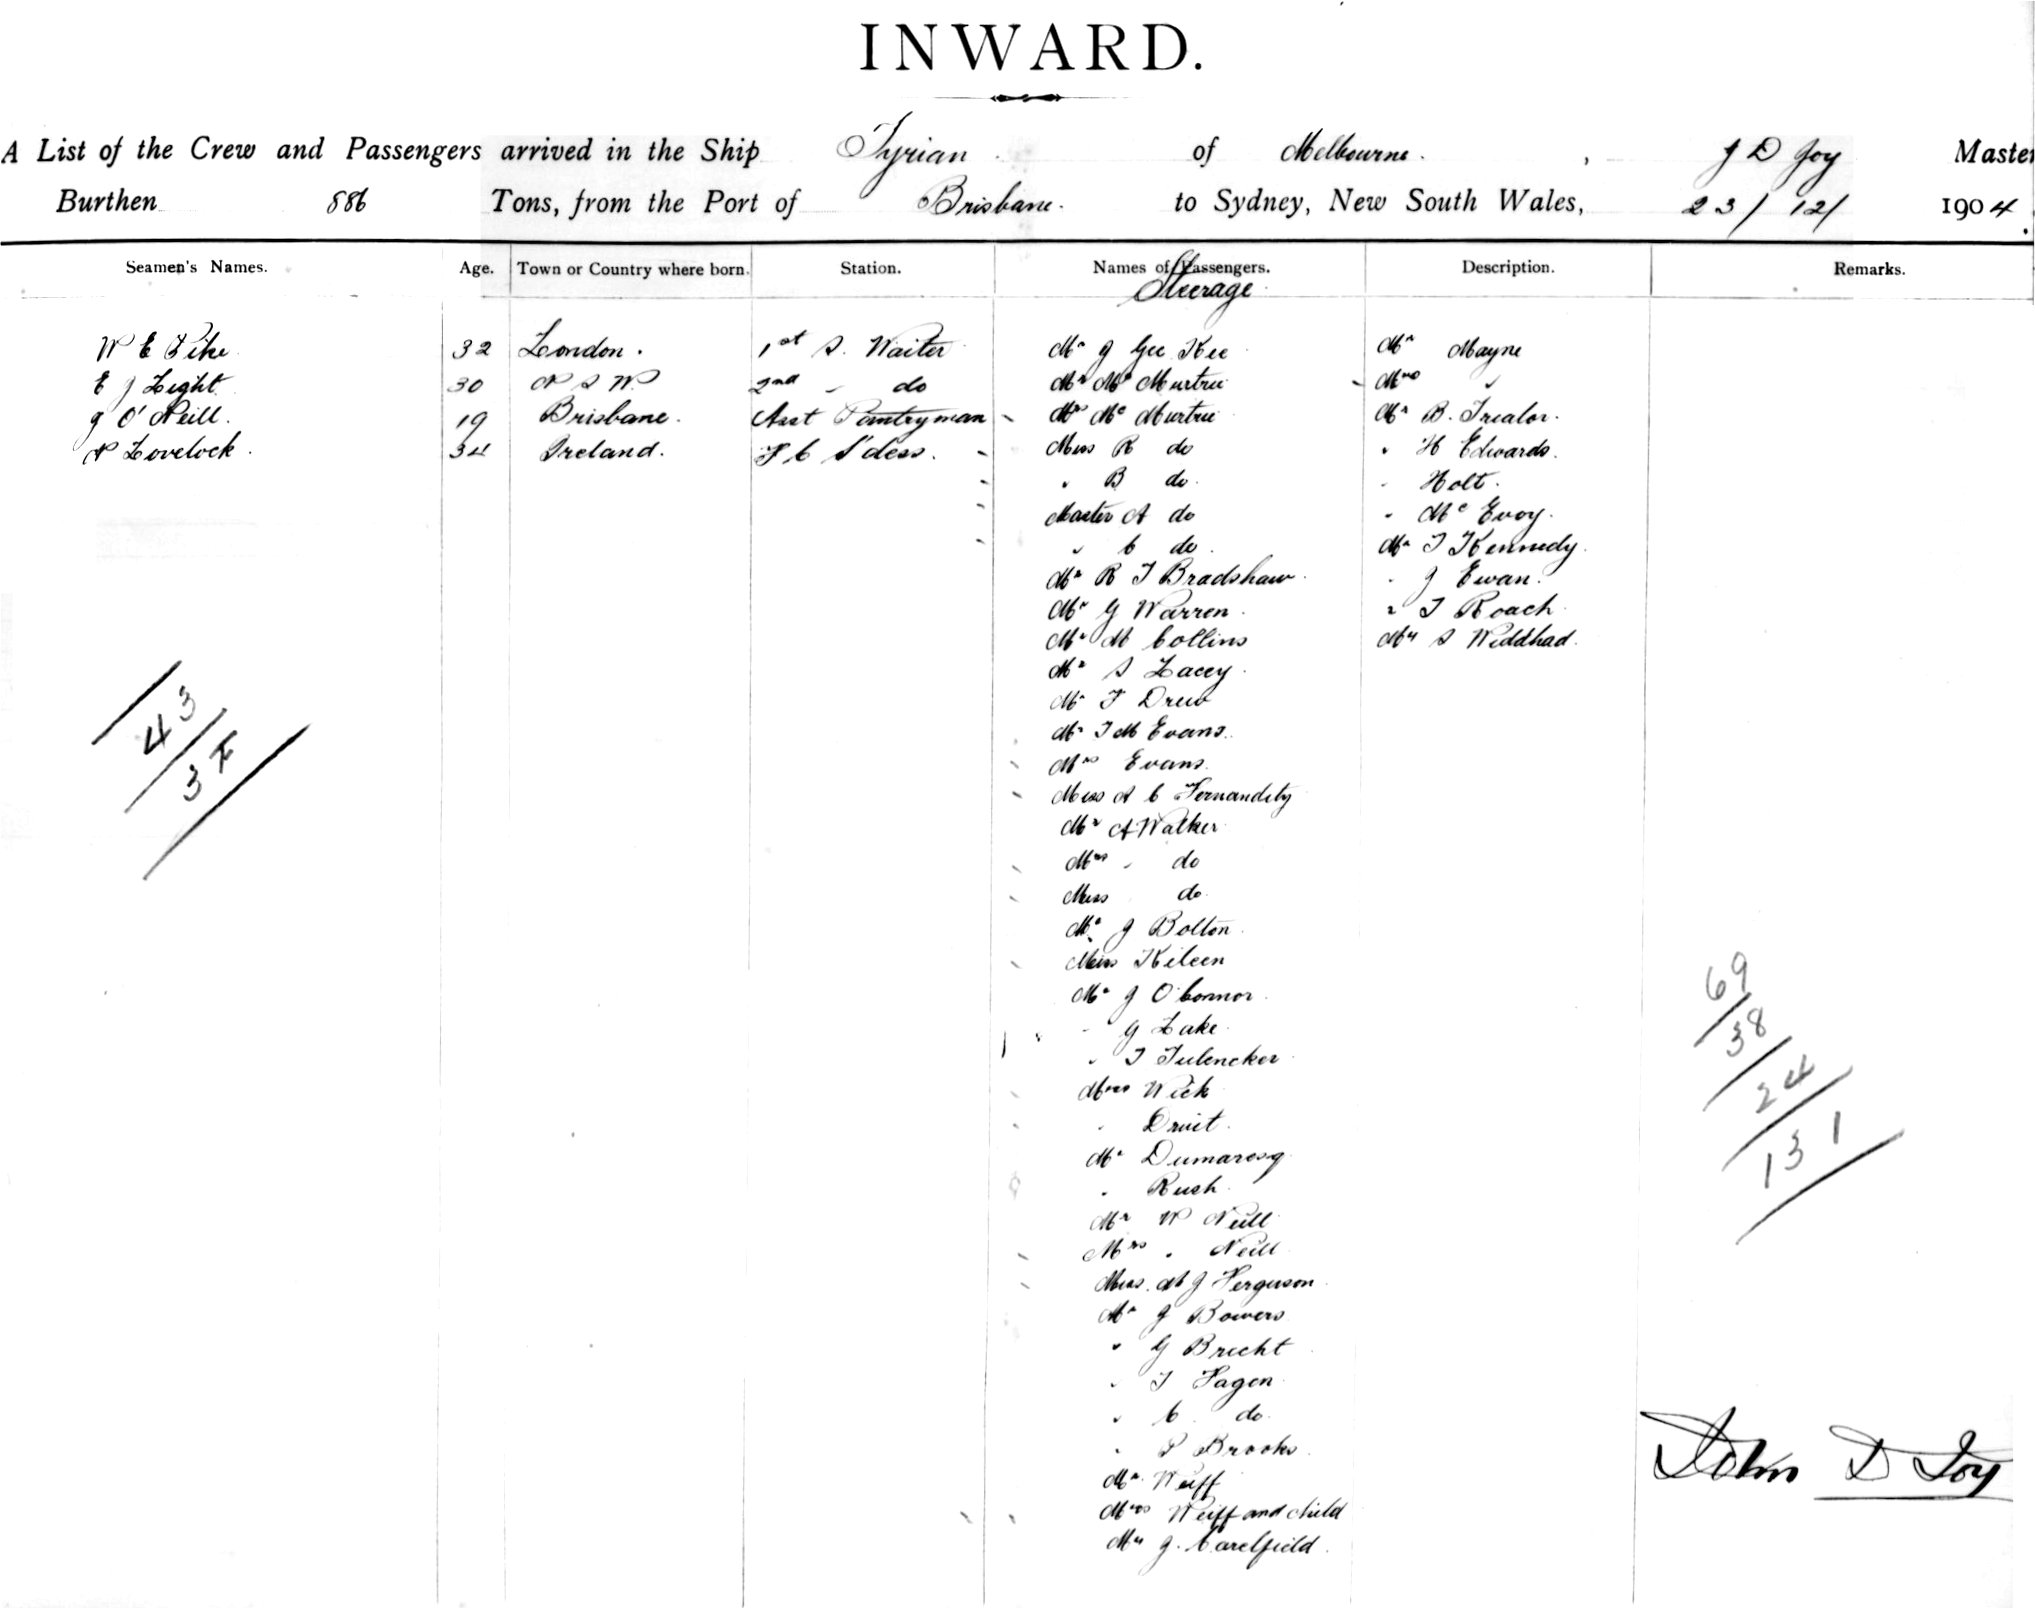 INWARD.
A List of the Crew and Passengers arrived in the Ship Tyrian of Melbourne. , J D Joy Master
Burthen 886 Tons, from the Port of Brisbane. to Sydney, New South Wales, 23/12/ 1904.
Seamen's Names. Age. Town or Country where born. Station. Names of Passengers. Description. Remarks.
Steerage
W E Pike 32 London. 1st S. Waiter Mr J Gee Kee Mr Mayne
E J Light 30 N S W 2nd " do Mr Mc Murtrie Mrs "
J O'Neill. 19 Brisbane. Asst Pantryman Mrs Mc Murtrie Mr B. Trealor.
Lovelock. 34 Ireland. F C S'dess. Miss R do " H Edwards.
" B do. " Holt.
Master A do " Mc Evoy.
" C do. Mr T Kennedy.
Mr R T Bradshaw. " J Ewan.
Mr G Warren. " T Roach
Mr M Collins Mr S Widdhad.
Mr S Lacey.
Mr F Drew
Mr T M Evans.
Mrs Evans.
Miss A C
Mr A Walker
Mrs " do
Miss do
Mr J Bolton.
Miss Kileen
Mr J O'Connor.
" G Lake.
" T
Mrs Wick
" Druit.
Mr Dumaresq
" Rush.
Mr W Neill
Mrs " Neill
Miss. M J Ferguson.
Mr J Bowers
" G Brecht
" T Fagon
" C. do.
" P Brooks.
Mr Weiff
Mrs Weiff and child
Mr J.
43
37
69
38
24
131
John D Joy